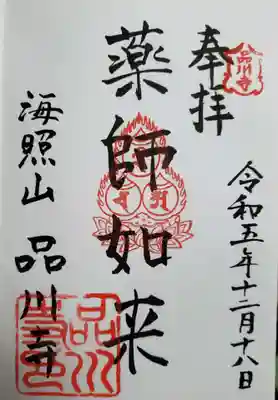 奉拝
品川寺
令和五年十二月十八日
薬師如来
海照山 品川寺